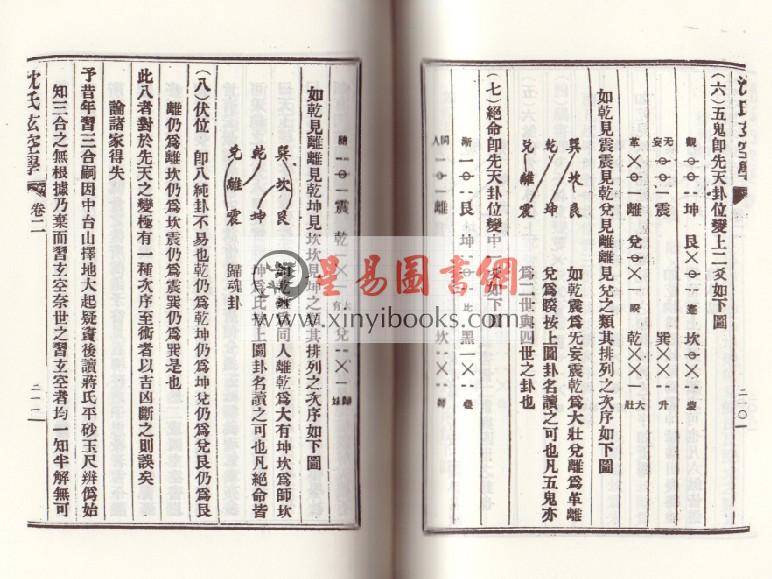 沈氏玄空學
二一〇
(六)五鬼即先天卦位變上二爻如下圖
觀 坤 艮 蹇 坎 蒙
无妄 震 巽 升
革 離 兌 睽 乾 大壯
如乾見震震見乾兌見離離見兌之類其排列之次序如下圖
巽坎艮
乾 坤
兌離震
如乾震爲无妄震乾爲大壯兌離爲革離
兌爲睽按上圖卦名讀之可也凡五鬼亦
爲二世與四世之卦也
(七)絕命即先天卦位變中一爻如下圖
漸 艮 坤 比
同人 離 坎 師
隨 震 乾 大有 兌 歸妹
如乾見離離見乾坤見坎坎見坤之類其排列之次序如下圖
巽坎艮
乾 坤
兌離震
爲同人離乾爲大有坤坎爲師坎
坤爲比上圖卦名讀之可也凡絕命皆
歸魂卦
(八)伏位 即八純卦不易也乾仍爲乾坤仍爲坤兌仍爲兌艮仍爲艮
離仍爲離坎仍爲坎震仍爲震巽仍爲巽是也
此八者對於先天之變極有一種次序至術者以吉凶斷之則誤矣
論諸家得失
予昔年習三合嗣因中台山擇地大起疑竇後讀蔣氏平砂玉尺辨僞始
知三合之無根據乃棄而習玄空奈世之習玄空者均一知半解無可
沈氏玄空學 卷二
二一一
星易圖書網
www.xinyibooks.com